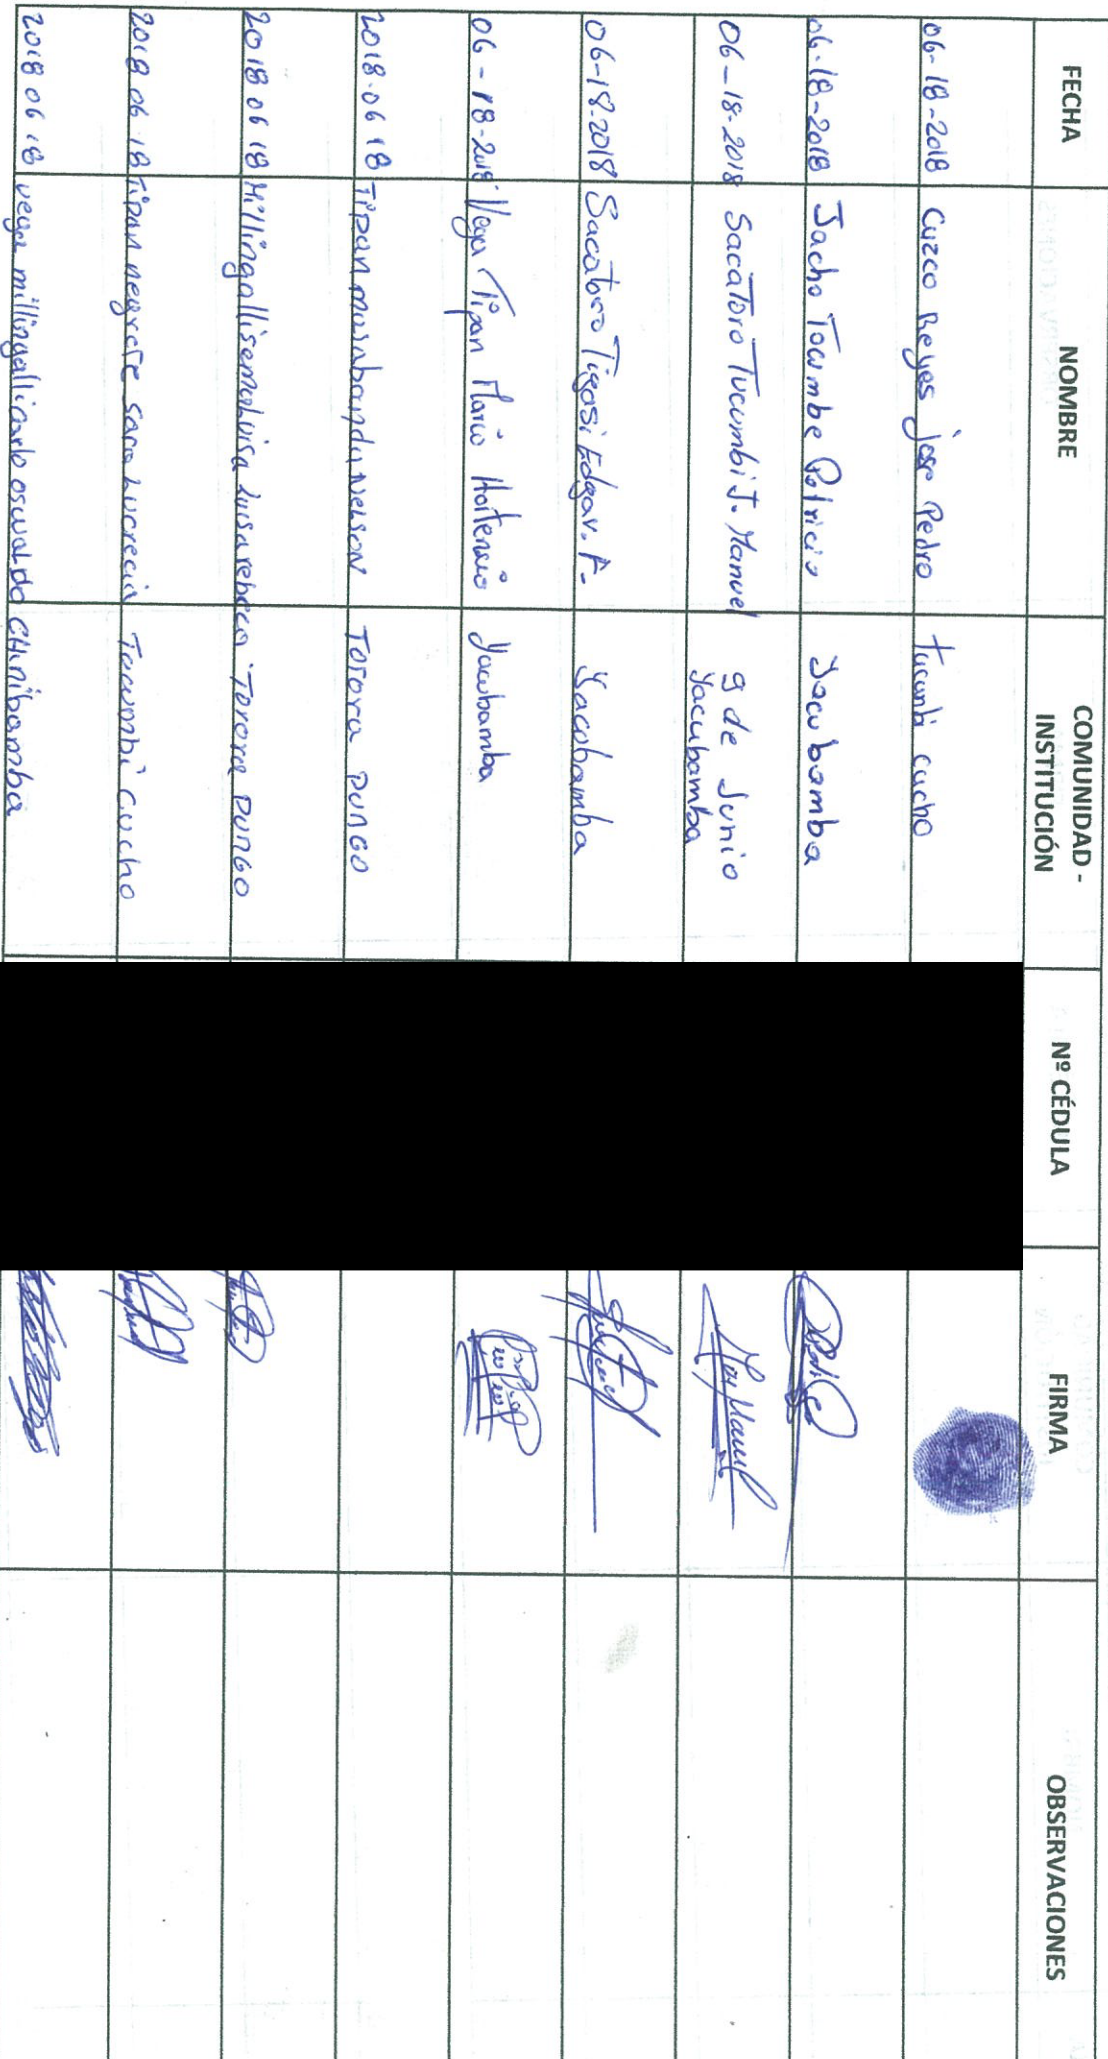 FECHA NOMBRE COMUNIDAD - INSTITUCIÓN Nº CÉDULA FIRMA OBSERVACIONES
06-18-2018 Cuzco Reyes jose Pedro tucumbi cucho
06-18-2018 Jacho Tocumbe Patricio Jacubamba
06-18-2018 Sacatoro Tucumbi J. Manuel 9 de Junio
Yacubamba
06-18-2018 Sacatoro Tigasi Edgar. P. Yacubamba
06-18-2018 Vega Tipan Mario Hortencio Yacubamba
2018-06 18 Tipan musabanda Nelson Totora PUNGO
2018 06 18 Millingalli semaluisa Luisa rebeca Totora PUNGO
2018 06 18 Tipan negrete sara Lucrecia Tucumbi Cucho
2018 06 18 vega millingalli carlo oswaldo CHinibamba